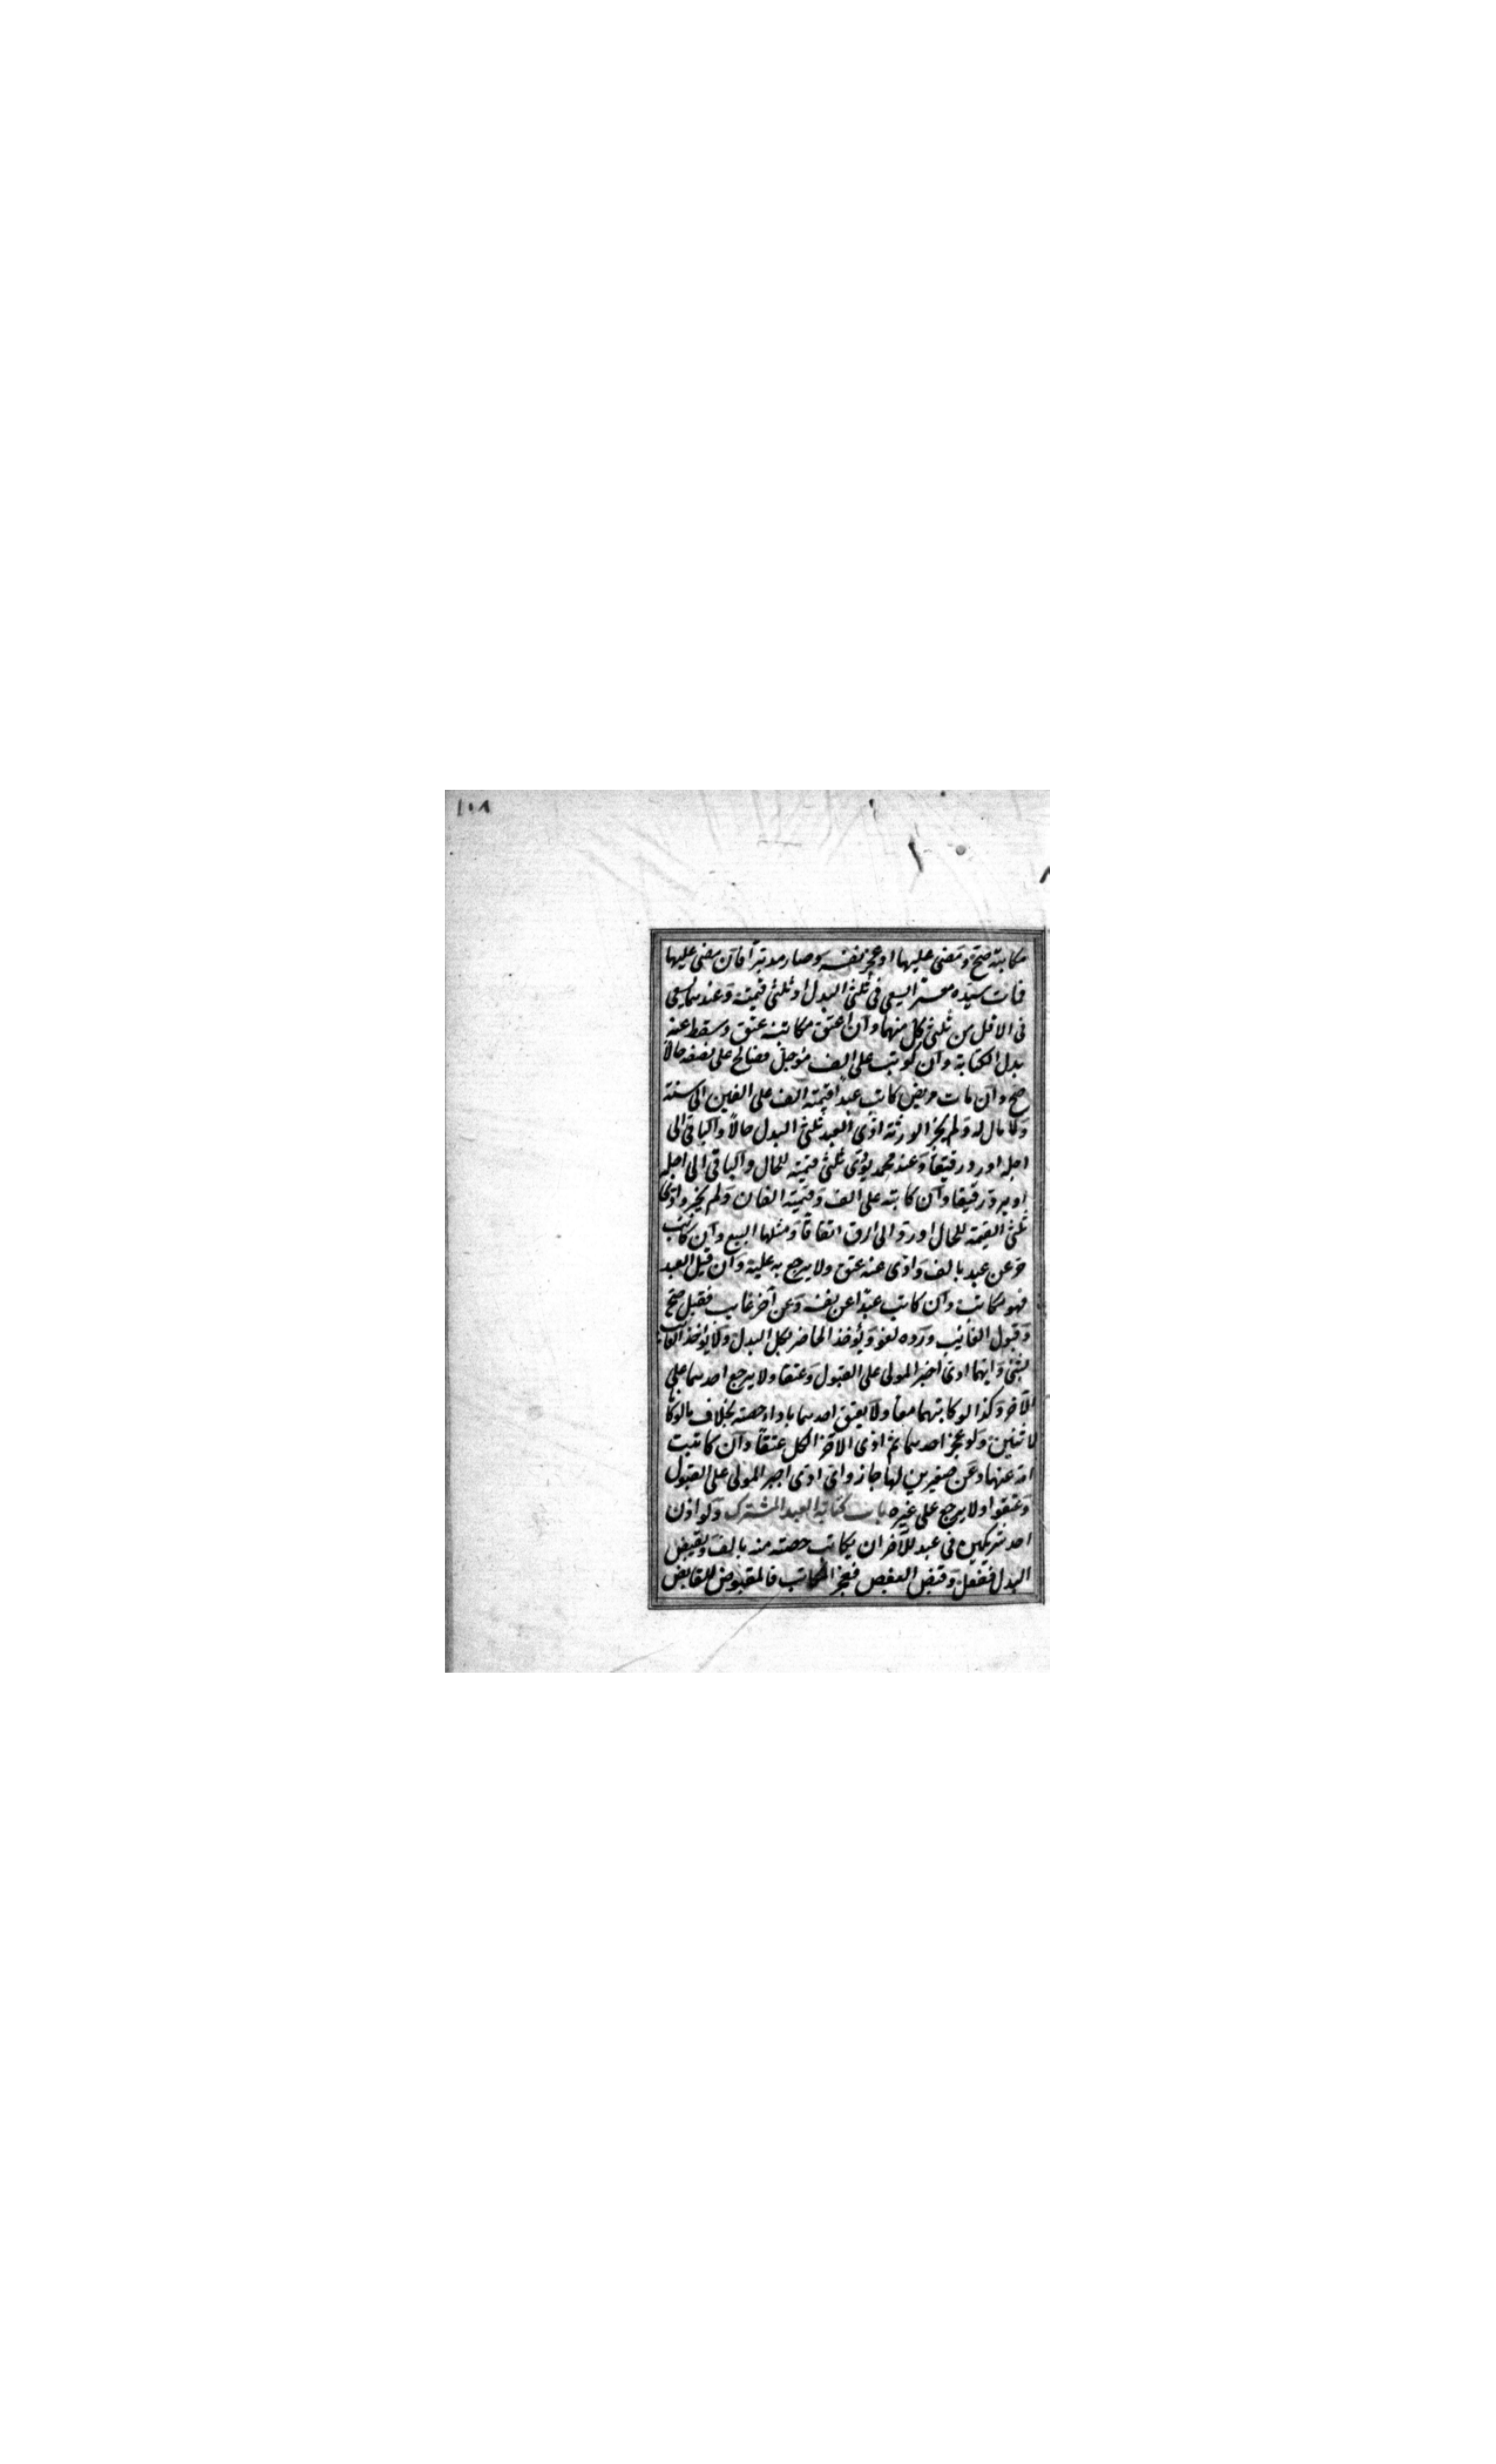 ١٠٨
مكاتبته صح ومضى عليها او عجز نفسه وصار مدبرا فان مضى عليها
فمات سيده معسرا يسعى في ثلثي البدل او ثلثي قيمته وعندهما يسعى
في الاقل من ثلثي كل منهما وان اعتق مكاتبه عتق وسقط عنه
بدل الكتابة وان كوتب على الف مؤجل فصالح على نصفه حالا
صح وان مات مريض كاتب عبدا قيمته الف على الفين الى سنة
ولا مال له ولم يجز الورثة ادى العبد ثلثي البدل حالا والباقي الى
اجله او رد رقيقا وعند محمد يؤدي ثلثي قيمته للحال والباقي الى اجله
او يرد رقيقا وان كاتبه على الف وقيمته الفان ولم يجيزوا ادى
ثلثي القيمة للحال او رد الى الرق اتفاقا ومثلها البيع وان كاتب
حر عن عبد بالف وادى عنه عتق ولا يرجع به عليه وان قبل العبد
فهو مكاتب وان كاتب عبدا عن نفسه وعن آخر غائب فقبل صح
وقبول الغائب ورده لغو ويؤخذ الحاضر بكل البدل ولا يؤخذ الغائب
بشئ وايهما ادى اجبر المولى على القبول وعتقا ولا يرجع احدهما على
الآخر وكذا لو كاتبهما معا ولا يعتق احدهما باداء حصته بخلاف ما لو كانا
لاثنين ولو عجز احدهما ثم ادى الآخر الكل عتقا وان كاتبت
امة عنها وعن صغيرين لها جاز واي ادى اجبر المولى على القبول
وعتقوا ولا يرجع على غيره باب كتابة العبد المشترك ولو اذن
احد شريكين في عبد للآخر ان يكاتب حصته منه بالف ويقبض
البدل ففعل وقبض البعض فعجز المكاتب فالمقبوض للقابض